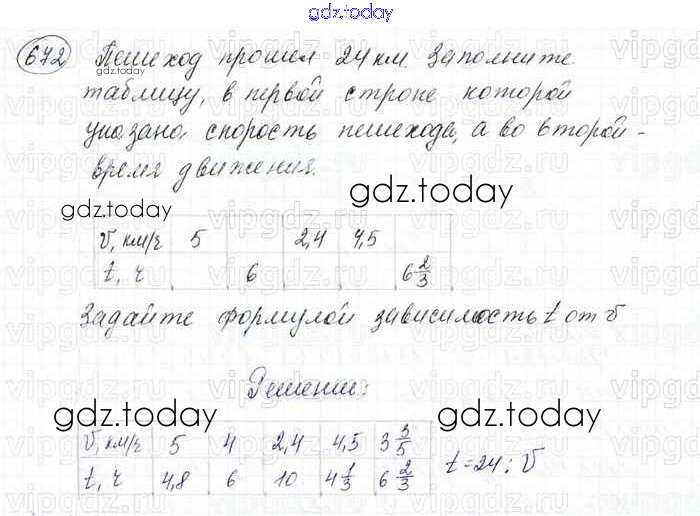 gdz.today
672 Пешеход прошел 24 км. Заполните
gdz.today
таблицу, в первой строке которой
указана скорость пешехода, а во второй -
время движения.
gdz.today
gdz.today
v, км/ч 5 2,4 4,5
t, ч 6 6 2/3
Задайте формулой зависимость t от v
Решение:
gdz.today
gdz.today
v, км/ч 5 4 2,4 4,5 3 3/5
t, ч 4,8 6 10 4 1/3 6 2/3
t = 24 : v
gdz.today